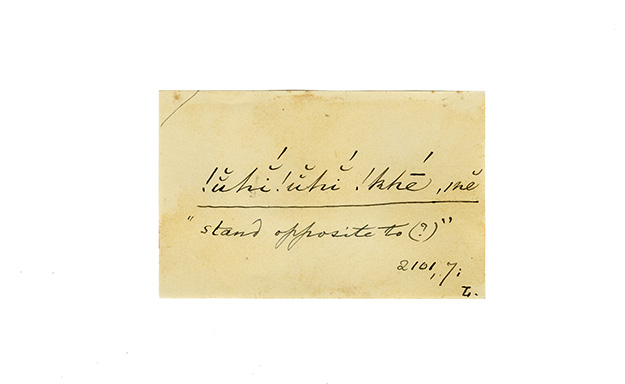 !ŭhĭ́ !ŭhĭ́ !khḗ, ıně
"stand opposite to (?)"
2101, 7;
L.